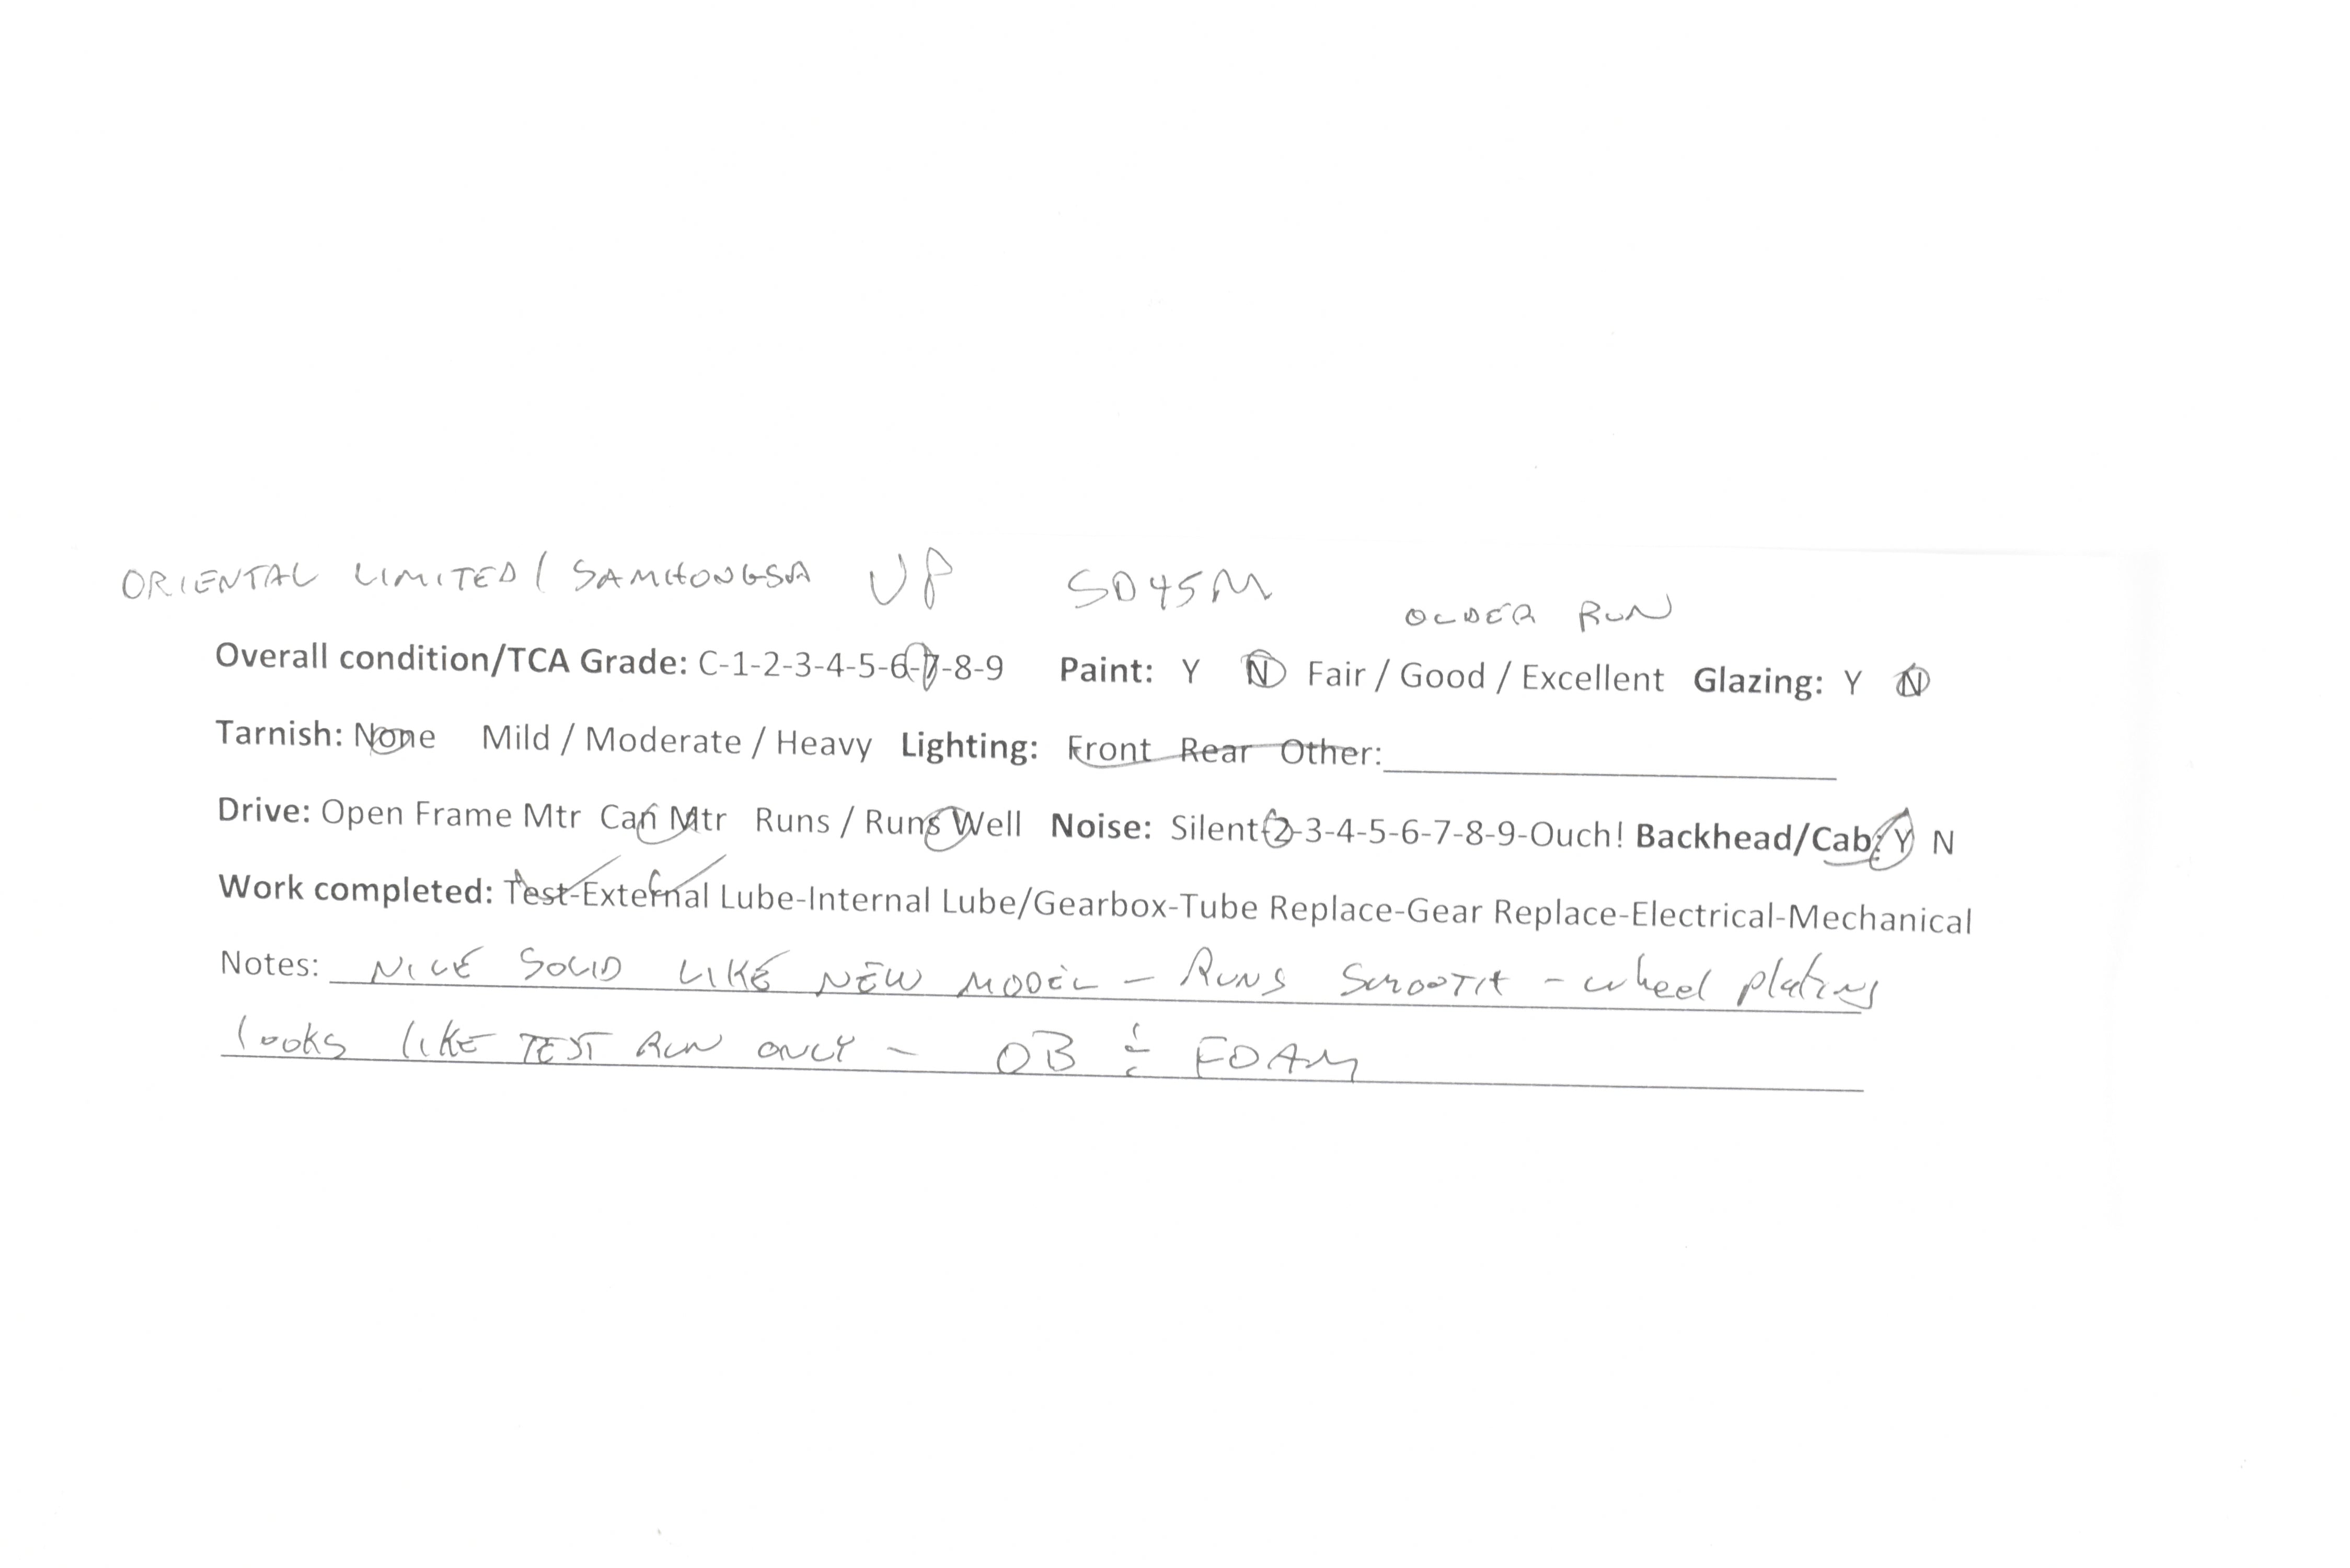 ORIENTAL LIMITED / SAMHONGSA UP SD45M
OLDER RUN
Overall condition/TCA Grade: C-1-2-3-4-5-6-7-8-9 Paint: Y N Fair / Good / Excellent Glazing: Y N
Tarnish: None Mild / Moderate / Heavy Lighting: Front Rear Other:
Drive: Open Frame Mtr Can Mtr Runs / Runs Well Noise: Silent-2-3-4-5-6-7-8-9-Ouch! Backhead/Cab: Y N
Work completed: Test-External Lube-Internal Lube/Gearbox-Tube Replace-Gear Replace-Electrical-Mechanical
Notes: NICE SOLID LIKE NEW MODEL - RUNS SMOOTH - wheel plating
looks like TEST RUN ONLY - OB & FOAM